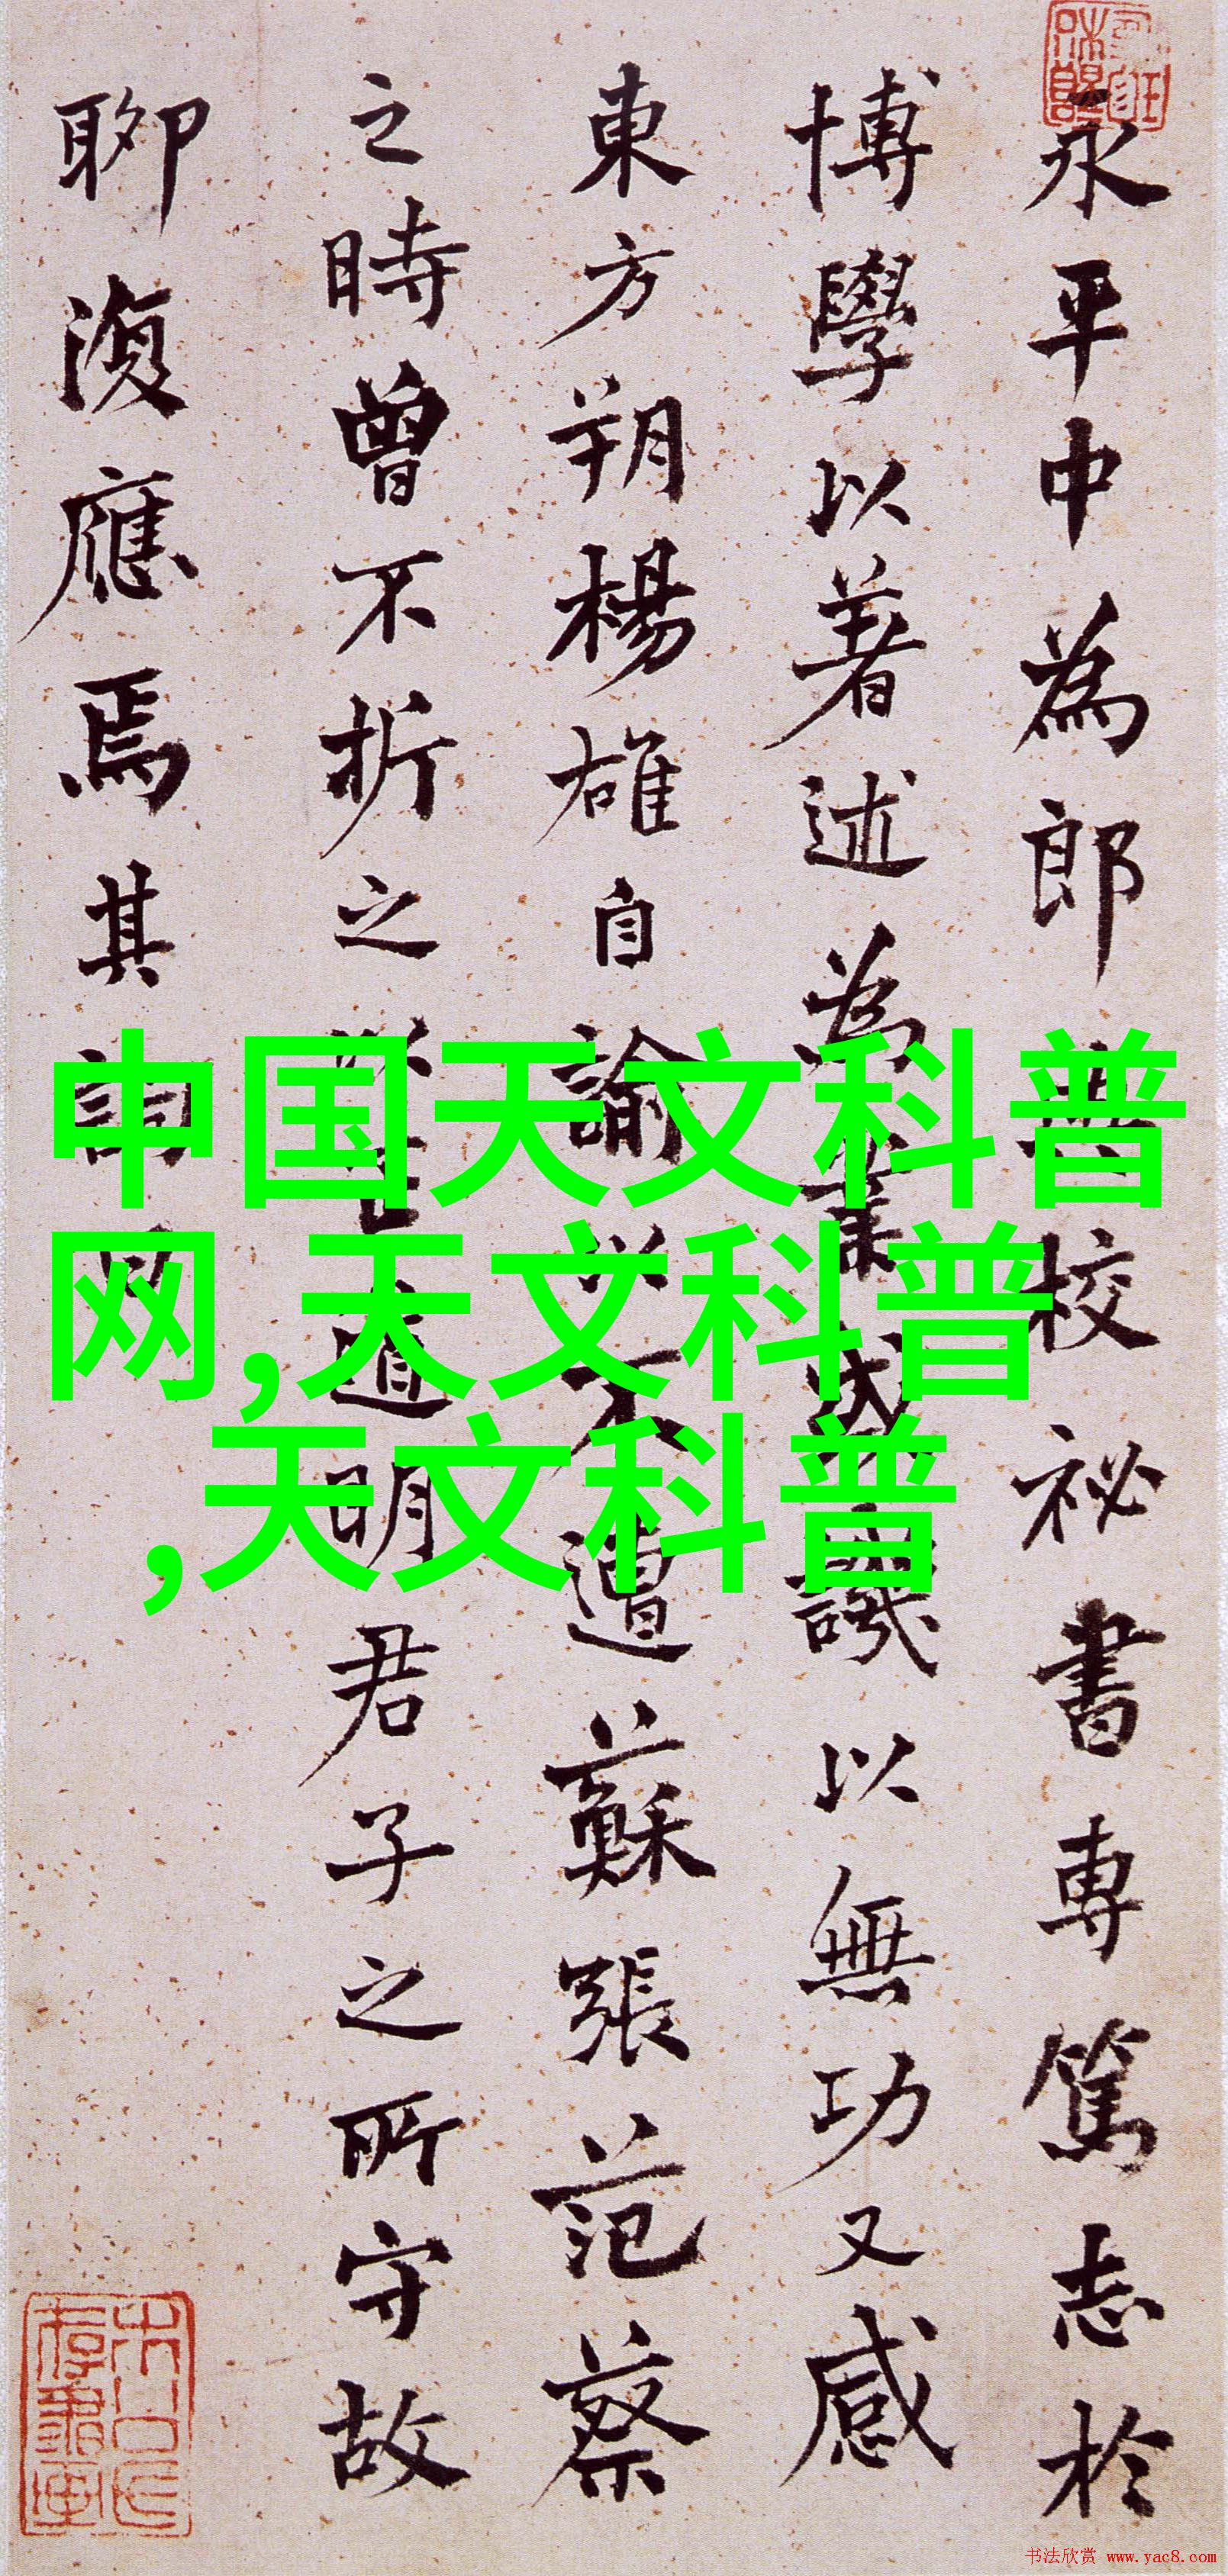 永平中為郎典校祕書專篤志於
博學以著述為業或譏以無功又感
東方朔楊雄自諭以不遭蘇張范蔡
之時曾不折之以正道明君子之所守故
聊復應焉其詞
中国天文科普
网,天文科普
,天文科普
书法欣赏 www.yac8.com